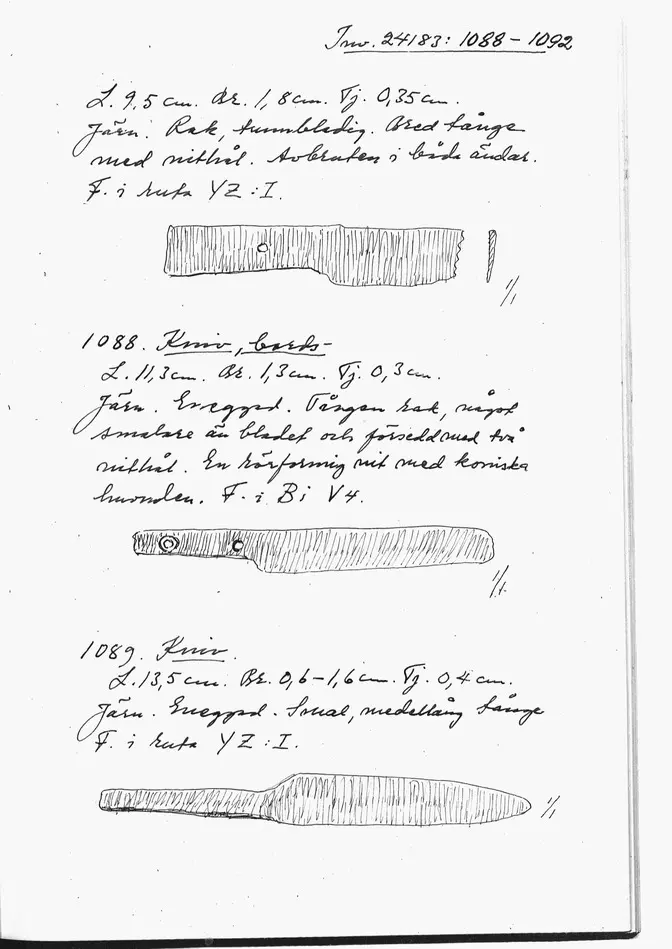 Inv. 24183: 1088 – 1092
L. 9,5 cm. Br. 1,8 cm. Tj. 0,35 cm.
Järn. Rak, tunnbladig. Bred tånge
med nithål. Avbruten i båda ändar.
F. i ruta YZ:I.
1/1
1088. Kniv, bords-
L. 11,3 cm. Br. 1,3 cm. Tj. 0,3 cm.
Järn. Eneggad. Tången rak, något
smalare än bladet och försedd med två
nithål. En rörformig nit med koniska
huvuden. F. i Bi V4.
1/1
1089. Kniv.
L. 13,5 cm. Br. 0,6–1,6 cm. Tj. 0,4 cm.
Järn. Eneggad. Smal, medellång tånge
F. i ruta YZ:I.
1/1